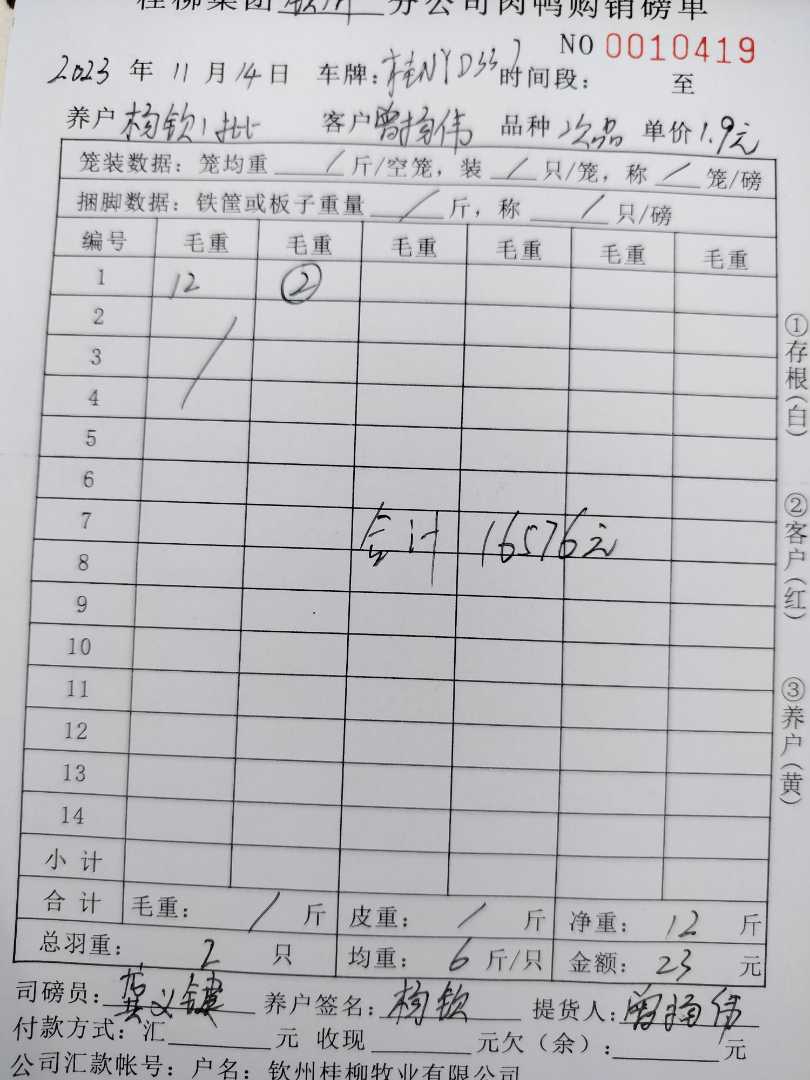 桂柳集团 钦州 分公司肉鸭购销磅单
NO 0010419
2023 年 11 月 14 日 车牌: 桂NYD337 时间段: 至
养户 杨钦1批 客户 曾扬伟 品种 次品 单价 1.9元
笼装数据: 笼均重 / 斤/空笼, 装 / 只/笼, 称 / 笼/磅
捆脚数据: 铁筐或板子重量 / 斤, 称 / 只/磅
编号 毛重 毛重 毛重 毛重 毛重 毛重
1 12 ②
2
3
4
5
6
7
合计 16576元
8
9
10
11
12
13
14
小计
合计 毛重: / 斤 皮重: / 斤 净重: 12 斤
总羽重: 2 只 均重: 6 斤/只 金额: 23 元
司磅员: 义键 养户签名: 杨钦 提货人: 曾扬伟
付款方式: 汇 元 收现 元欠(余): 元
公司汇款帐号: 户名: 钦州桂柳牧业有限公司
①存根(白)
②客户(红)
③养户(黄)